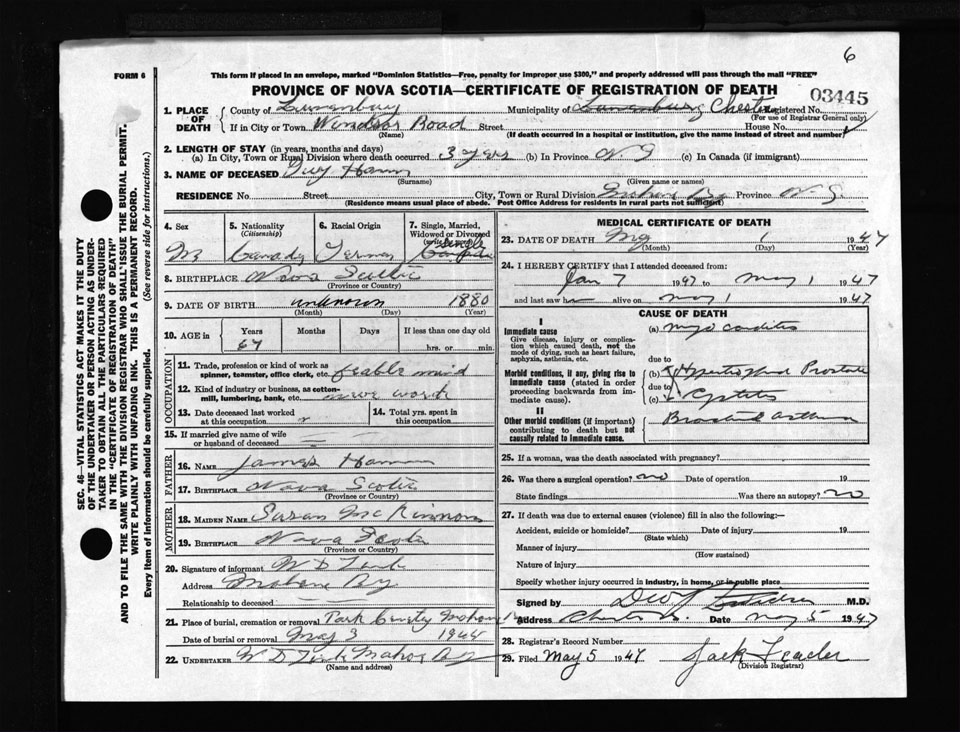 6
FORM 6
This form if placed in an envelope, marked "Dominion Statistics—Free, penalty for improper use $300," and properly addressed will pass through the mail "FREE"
PROVINCE OF NOVA SCOTIA—CERTIFICATE OF REGISTRATION OF DEATH
03445
SEC. 46—VITAL STATISTICS ACT MAKES IT THE DUTY
OF THE UNDERTAKER OR PERSON ACTING AS UNDER-
TAKER TO OBTAIN ALL THE PARTICULARS REQUIRED
IN THE "CERTIFICATE OF REGISTRATION OF DEATH"
AND TO FILE THE SAME WITH THE DIVISION REGISTRAR WHO SHALL ISSUE THE BURIAL PERMIT.
WRITE PLAINLY WITH UNFADING INK. THIS IS A PERMANENT RECORD.
Every item of information should be carefully supplied. (See reverse side for instructions.)
1. PLACE OF DEATH
County of Lunenburg Municipality of Lunenburg Chester Registered No.
(For use of Registrar General only)
If in City or Town Windsor Road Street House No.
(If death occurred in a hospital or institution, give the name instead of street and number)
2. LENGTH OF STAY (in years, months and days)
(a) In City, Town or Rural Division where death occurred 3 yers (b) In Province N. S (c) In Canada (if immigrant)
3. NAME OF DECEASED Guy Hamm
(Surname) (Given name or names)
RESIDENCE No. Street City, Town or Rural Division Mahone By Province N. S.
(Residence means usual place of abode. Post Office Address for residents in rural parts not sufficient)
4. Sex
M
5. Nationality
(Citizenship)
6. Racial Origin
7. Single, Married,
Widowed or Divorced
(write the word)
Single
8. BIRTHPLACE Nova Scotia
(Province or Country)
9. DATE OF BIRTH unknown 1880
(Month) (Day) (Year)
10. AGE in Years Months Days If less than one day old
67 hrs. or min.
OCCUPATION
11. Trade, profession or kind of work as
spinner, teamster, office clerk, etc. feable mind
12. Kind of industry or business, as cotton-
mill, lumbering, bank, etc.
13. Date deceased last worked
at this occupation
14. Total yrs. spent in
this occupation
15. If married give name of wife
or husband of deceased
FATHER
16. NAME James Hamm
17. BIRTHPLACE Nova Scotia
(Province or Country)
MOTHER
18. MAIDEN NAME Susan McKinnon
19. BIRTHPLACE Nova Scotia
(Province or Country)
20. Signature of informant W D Zink
Address Mahone By
Relationship to deceased
21. Place of burial, cremation or removal Park Mahone
Date of burial or removal May 3
22. UNDERTAKER W D Zink Mahone By
(Name and address)
MEDICAL CERTIFICATE OF DEATH
23. DATE OF DEATH 1 1947
(Month) (Day) (Year)
24. I HEREBY CERTIFY that I attended deceased from:
Jan 7 1947 to May 1 1947
and last saw h alive on May 1 1947
CAUSE OF DEATH
I
Immediate cause
Give disease, injury or complica-
tion which caused death, not the
mode of dying, such as heart failure,
asphyxia, asthenia, etc.
(a) myocarditis
due to
Morbid conditions, if any, giving rise to
immediate cause (stated in order
proceeding backwards from im-
mediate cause).
(b) Prostate
due to
(c) Cystitis
II
Other morbid conditions (if important)
contributing to death but not
causally related to immediate cause.
25. If a woman, was the death associated with pregnancy?
26. Was there a surgical operation? no Date of operation 19
State findings Was there an autopsy? no
27. If death was due to external causes (violence) fill in also the following:—
Accident, suicide or homicide? Date of injury 19
(State which)
Manner of injury
(How sustained)
Nature of injury
Specify whether injury occurred in industry, in home, or in public place
Signed by M.D.
Address Chester Date May 5 1947
28. Registrar's Record Number
29. Filed May 5 1947 Jack Leader
(Division Registrar)